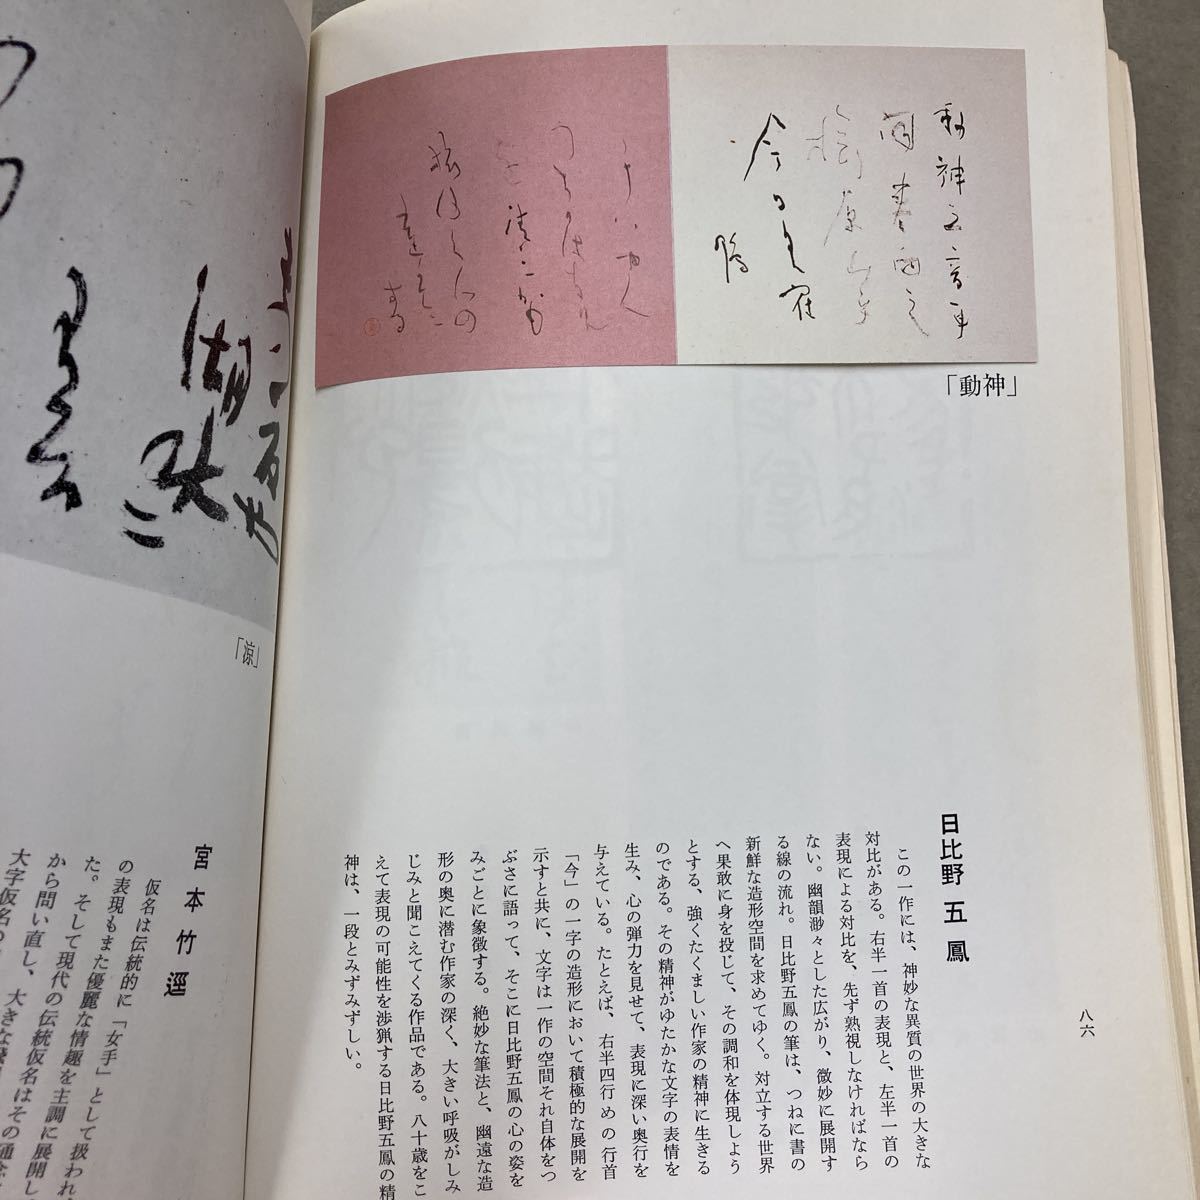 「動神」
八六
日比野五鳳
この一作には、神妙な異質の世界の大きな
対比がある。右半一首の表現と、左半一首の
表現による対比を、先ず熟視しなければなら
ない。幽韻渺々とした広がり、微妙に展開す
る線の流れ。日比野五鳳の筆は、つねに書の
新鮮な造形空間を求めてゆく。対立する世界
へ果敢に身を投じて、その調和を体現しよう
とする、強くたくましい作家の精神に生きる
のである。その精神がゆたかな文字の表情を
生み、心の弾力を見せて、表現に深い奥行を
与えている。たとえば、右半四行めの行首
「今」の一字の造形において積極的な展開を
示すと共に、文字は一作の空間それ自体をつ
ぶさに語って、そこに日比野五鳳の心の姿を
みごとに象徴する。絶妙な筆法と、幽遠な造
形の奥に潜む作家の深く、大きい呼吸がしみ
じみと聞こえてくる作品である。八十歳をこ
えて表現の可能性を渉猟する日比野五鳳の精
神は、一段とみずみずしい。
「涼」
宮本竹逕
仮名は伝統的に「女手」として扱われ
の表現もまた優麗な情趣を主調に展開し
た。そして現代の伝統仮名はその通念
から問い直し、大きな発
大字仮名の